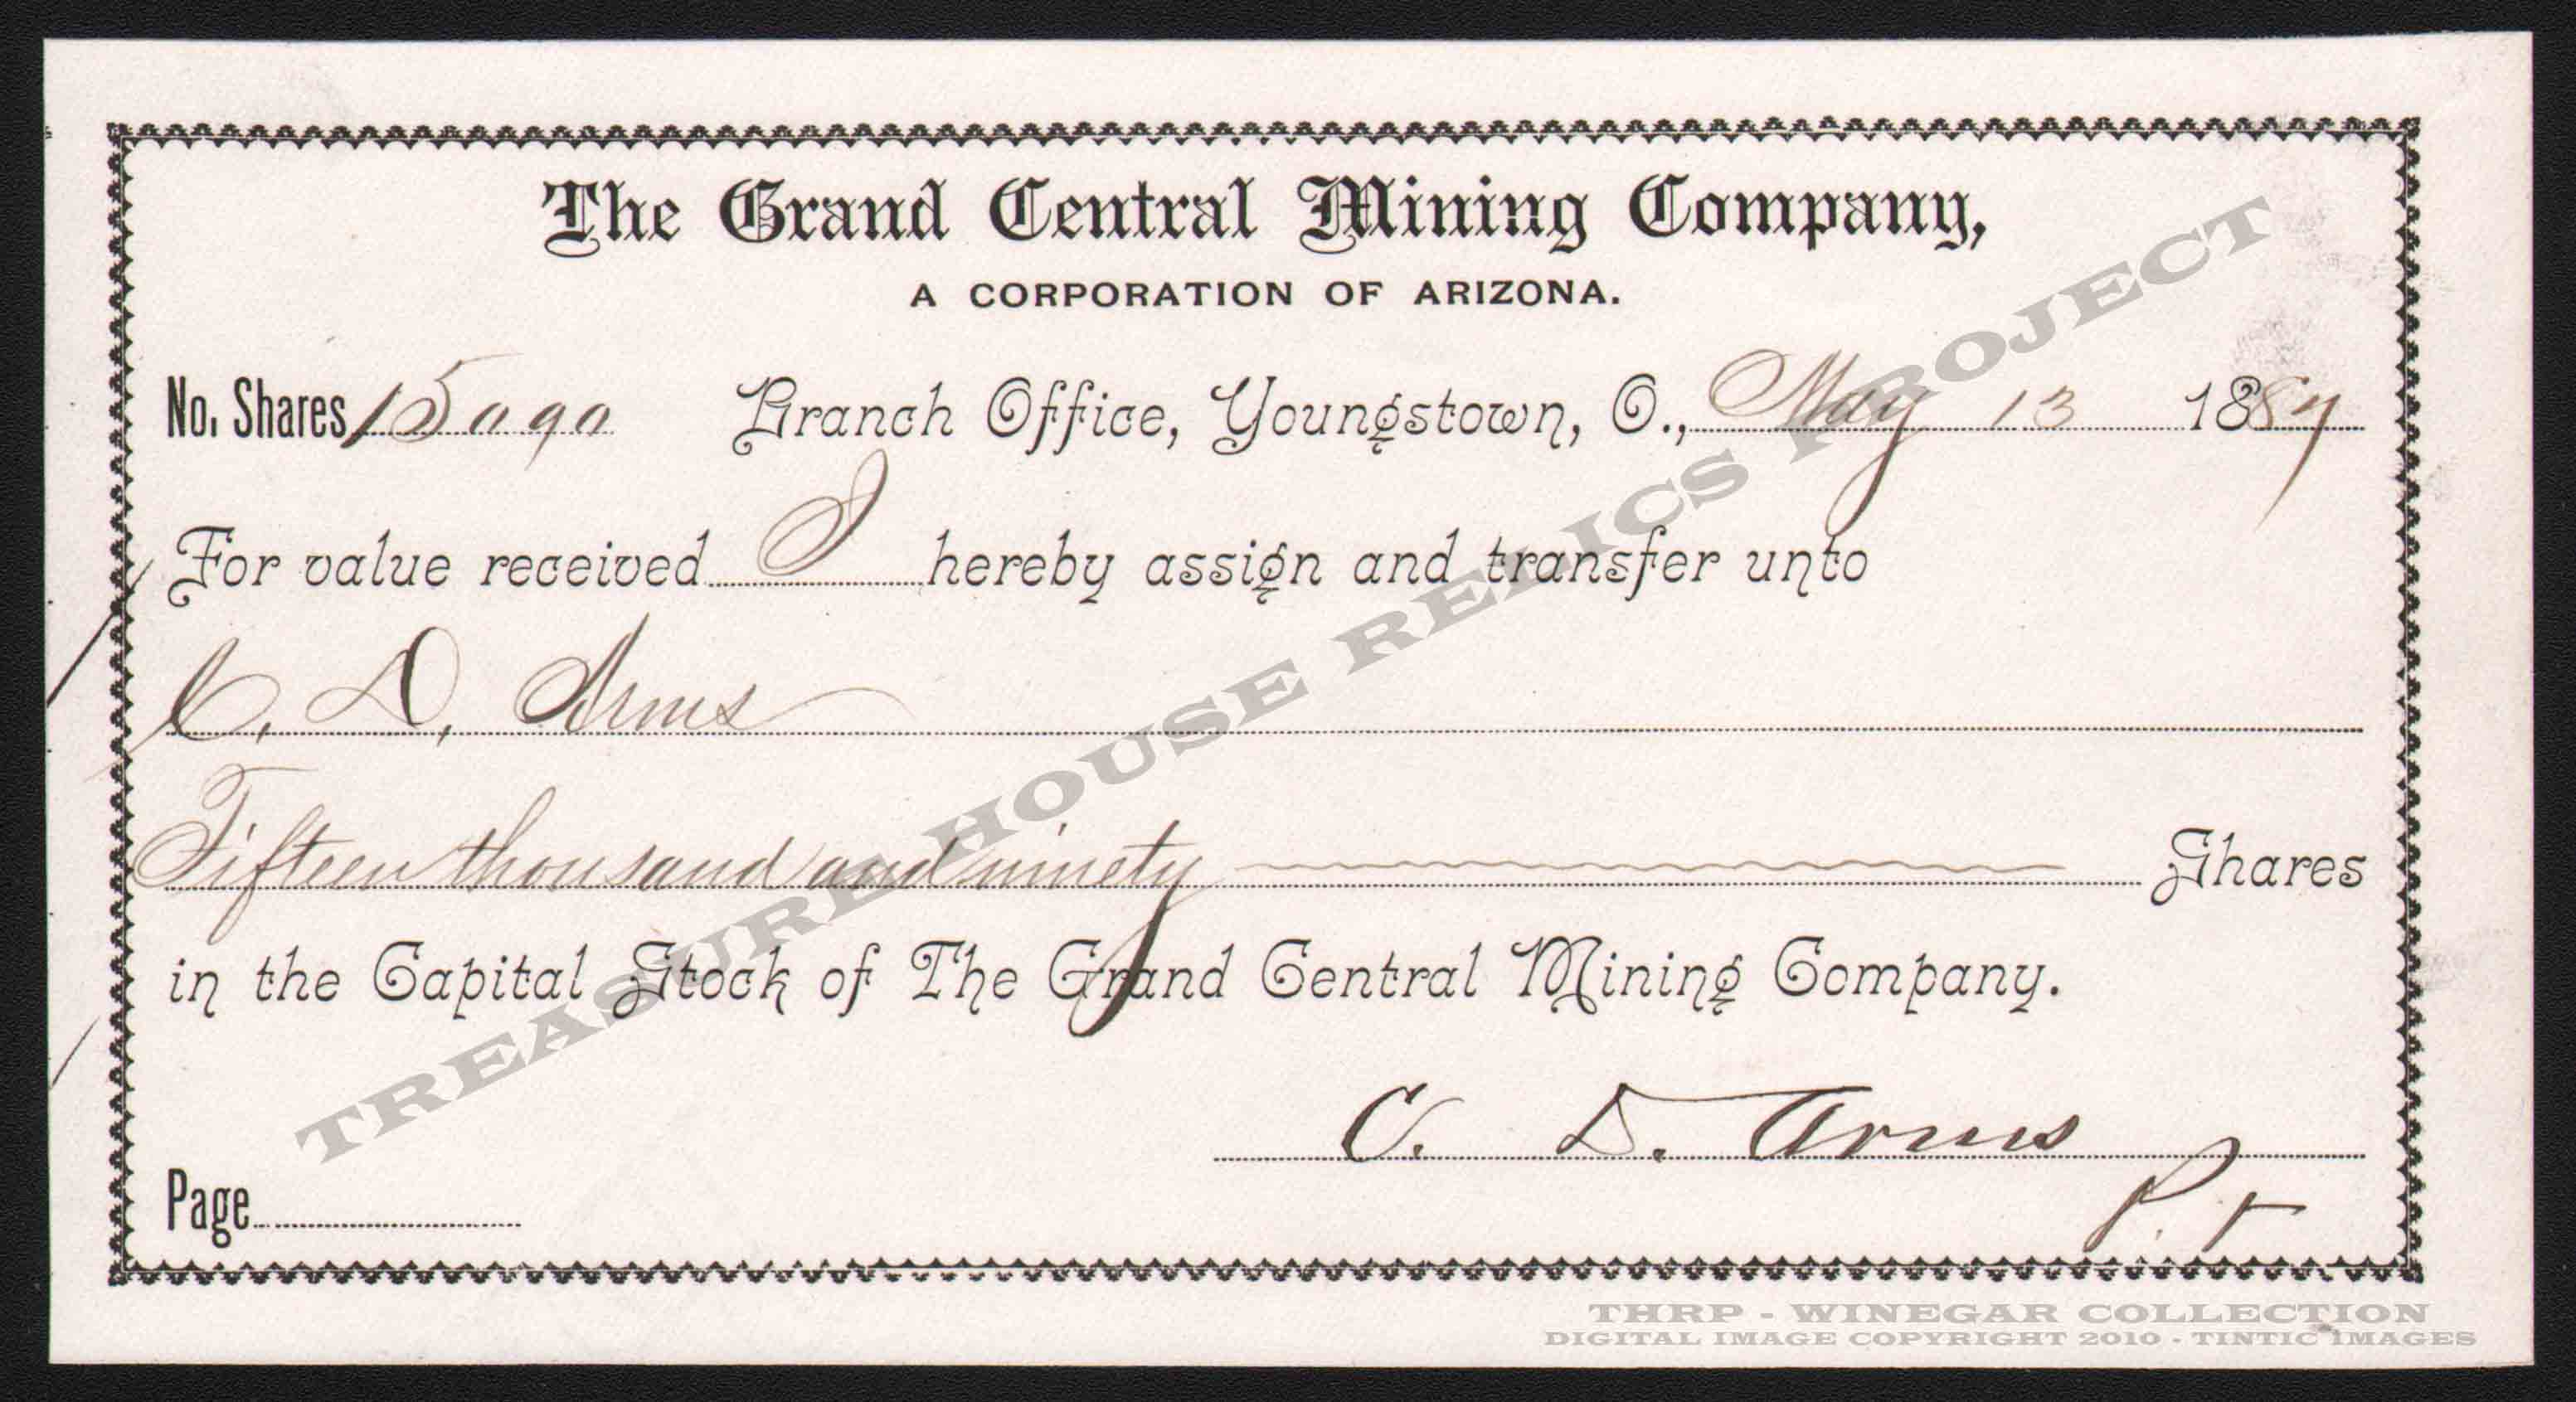 The Grand Central Mining Company,
A CORPORATION OF ARIZONA.
No. Shares 15090 Branch Office, Youngstown, O., May 13 1887
For value received I hereby assign and transfer unto
C. D. Arms
Fifteen thousand and ninety Shares
in the Capital Stock of The Grand Central Mining Company.
C. D. Arms
Page
TREASURE HOUSE RELICS PROJECT
THRP - WINEGAR COLLECTION
DIGITAL IMAGE COPYRIGHT 2010 - TINTIC IMAGES